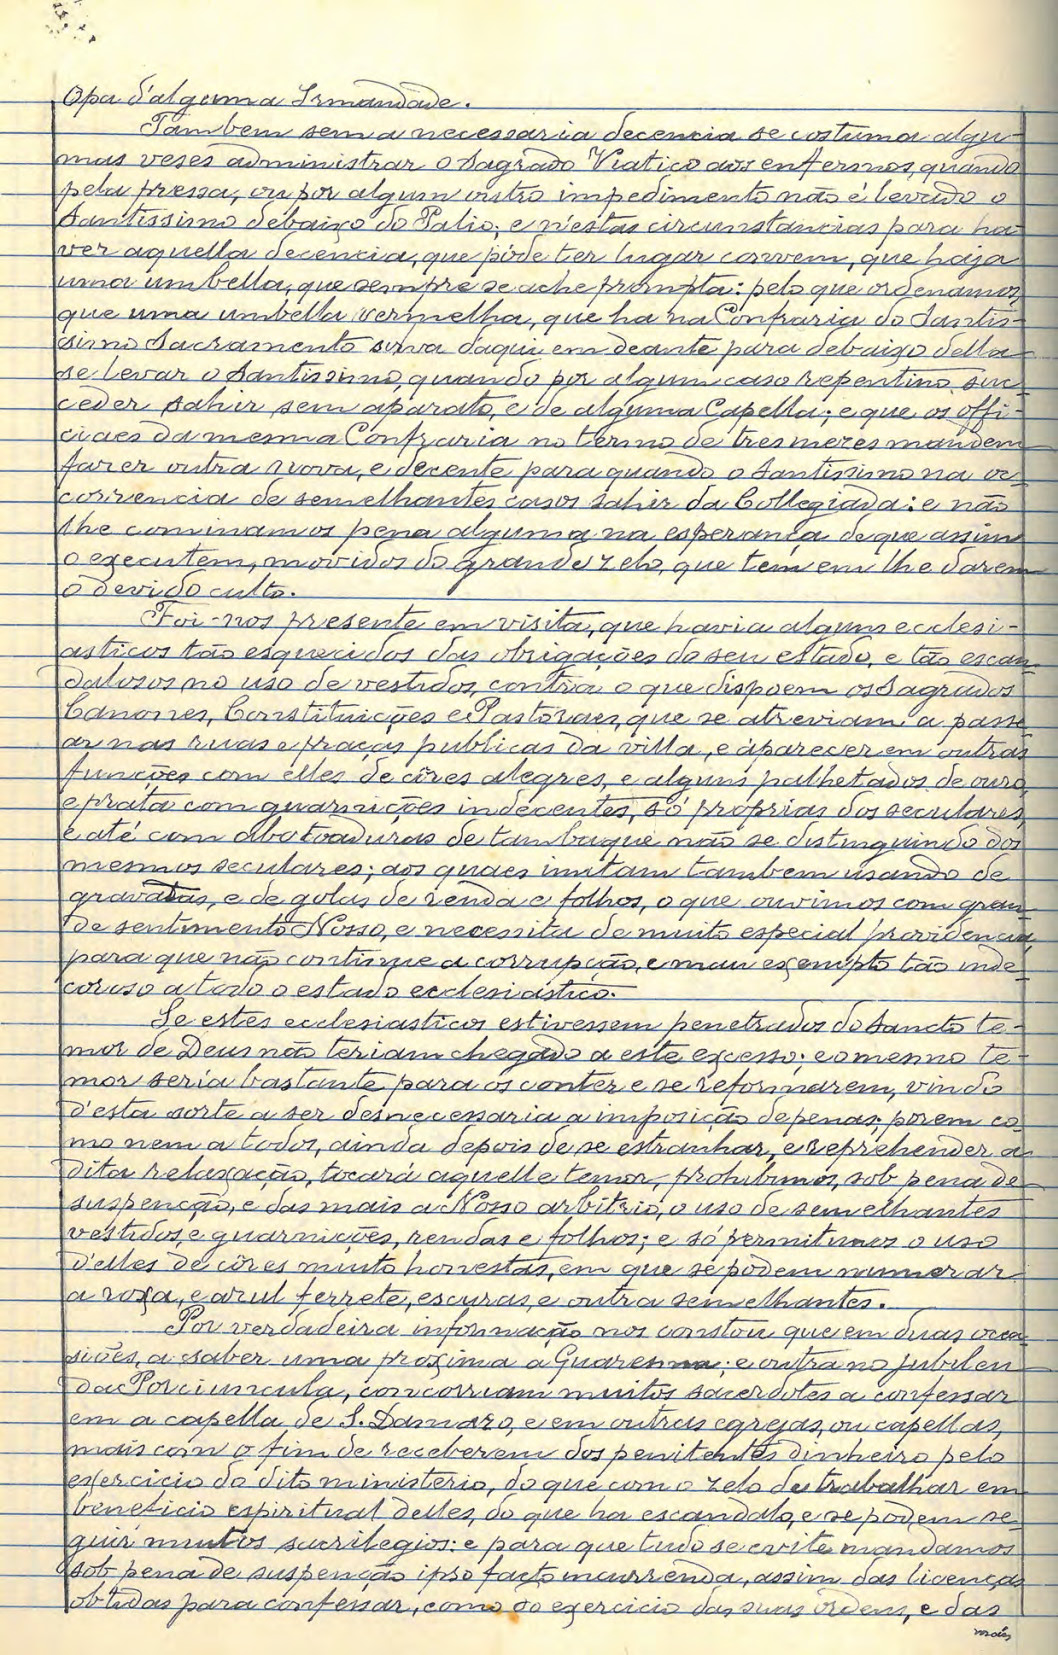 Opa d'alguma Irmandade.
Tambem sem a necessaria decencia se costuma algu-
mas veses administrar o Sagrado Viatico aos enfermos, quando
pela pressa, ou por algum outro impedimento não é levado o
Santissimo debaixo do Palio; e n'estas circunstancias para ha-
ver aquella decencia, que póde ter lugar convem, que haja
uma umbella, que sempre se ache prompta: pelo que ordenamos,
que uma umbella vermelha, que ha na Confraria do Santis-
simo Sacramento sirva d'aqui em deante para debaixo della
se levar o Santissimo, quando por algum caso repentino suc-
ceder sahir sem aparato, e de alguma Capella; e que os offi-
ciaes da mesma Confraria no termo de tres mezes mandem
fazer outra nova, e decente para quando o Santissimo na oc-
correncia de semelhantes casos sahir da Collegiada: e não
lhe cominamos pena alguma na esperança de que assim
o executem, movidos do grande zelo, que tem em lhe darem
o devido culto.
Foi-nos presente em visita, que havia alguns ecclesi-
asticos tão esquecidos das obrigações do seu estado, e tão escan-
dalosos no uso de vestidos, contra o que dispoem os Sagrados
Canones, Constituições e Pastoraes, que se atreviam a passe-
ar nas ruas e praças publicas da villa, e aparecer em outras
funções com elles de côres alegres, e alguns palhetados de ouro,
e prata com guarnições indecentes, só proprias dos seculares,
e até com abotoaduras de tambaque não se distinguindo dos
mesmos seculares; aos quaes imitam tambem usando de
gravatas, e de golas de renda e folhos, o que ouvimos com gran-
de sentimento Nosso, e necessita de muito especial providencia,
para que não continue a corrupção, e mau exemplo tão inde-
coroso a todo o estado ecclesiástico.
Se estes ecclesiasticos estivessem penetrados do Sancto te-
mor de Deus não teriam chegado a este excesso; e o mesmo te-
mor seria bastante para os conter e se reformarem, vindo
d'esta sorte a ser desnecessaria a imposição de penas; porem co-
mo nem a todos, ainda depois de se estranhar, e reprehender a
dita relaxação, tocará aquelle temor, prohibimos, sob pena de
suspenção, e das mais a Nosso arbitrio, o uso de semelhantes
vestidos, e guarnições, rendas e folhos; e só permitimos o uso
d'elles de côres muito honestas, em que se pódem numerar
a roxa, e azul ferrete, escuras, e outra semelhantes.
Por verdadeira informação nos constou que em duas occa-
siões, a saber uma proxima a Quaresma; e outra no jubileu
da Porciuncula, concorriam muitos sacerdotes a confessar
em a capella de S. Damazo, e em outras egrejas, ou capellas,
mais com o fim de receberem dos penitentes dinheiro pelo
exercicio do dito ministerio, do que com o zelo de trabalhar em
beneficio espiritual delles, do que ha escandalo, e se podem se-
guir muitos sacrilegios: e para que tudo se evite mandamos
sob pena de suspenção ipso facto incurrenda, assim das licenças
obtidas para confessar, como do exercicio das suas ordens, e das
mais